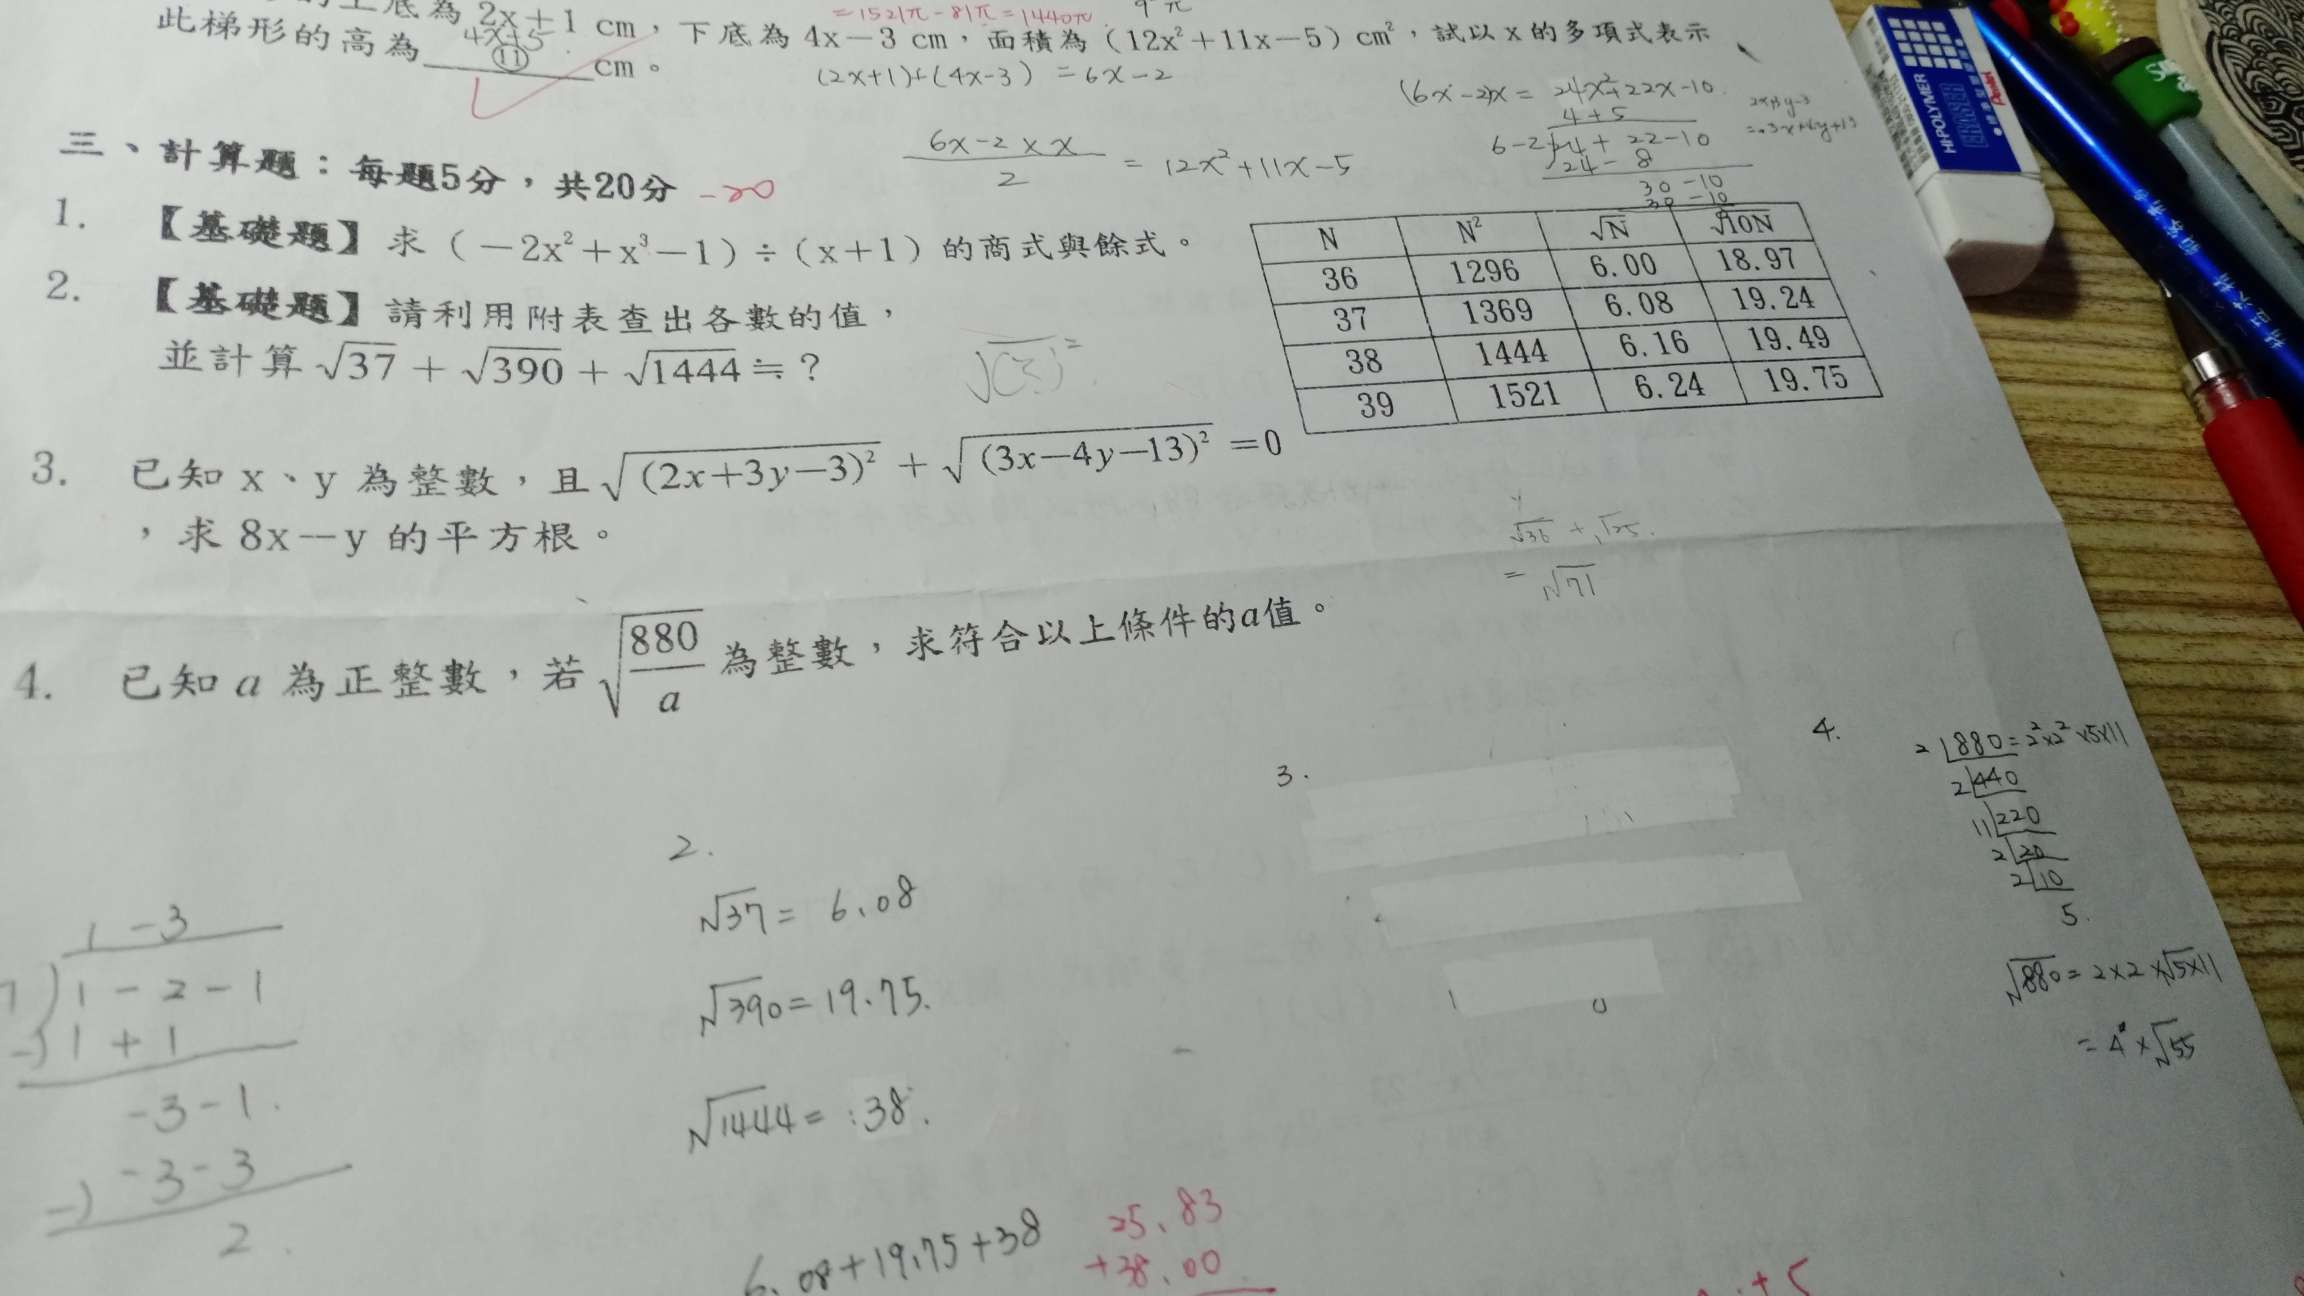 =1521π-81π=1440π
上底為 2x+1 cm，下底為 4x－3 cm，面積為（12x²＋11x－5）cm²，試以 x 的多項式表示
此梯形的高為 4x+5 cm。
⑪
(2x+1)+(4x-3) = 6x-2
(6x-2)x = 24x²+22x-10
6x-2 × x
2
= 12x²+11x-5
4+5
6-2
24+22-10
24-8
30-10
30-10
三、計算題：每題5分，共20分 -20
1. 【基礎題】求（－2x²＋x³－1）÷（x＋1）的商式與餘式。
2. 【基礎題】請利用附表查出各數的值，
並計算 √37 + √390 + √1444 ≒ ?
N N² √N √10N
36 1296 6.00 18.97
37 1369 6.08 19.24
38 1444 6.16 19.49
39 1521 6.24 19.75
3. 已知 x、y 為整數，且 √(2x+3y-3)² + √(3x-4y-13)² =0
，求 8x－y 的平方根。
√36 + √25.
= √71
4. 已知 a 為正整數，若 √880/a 為整數，求符合以上條件的a值。
1 -3
1 - 2 - 1
-) 1 + 1
-3 - 1
-) -3 - 3
2
2.
√37 = 6.08
√390 = 19.75.
√1444 = 38.
6.08+19.75+38
25.83
+38.00
3.
4.
2 880 = 2²×2²×5×11
2 440
11 220
2 20
2 10
5.
√880 = 2×2×√5×11
= 4×√55
+5
HI-POLYMER
Pentel